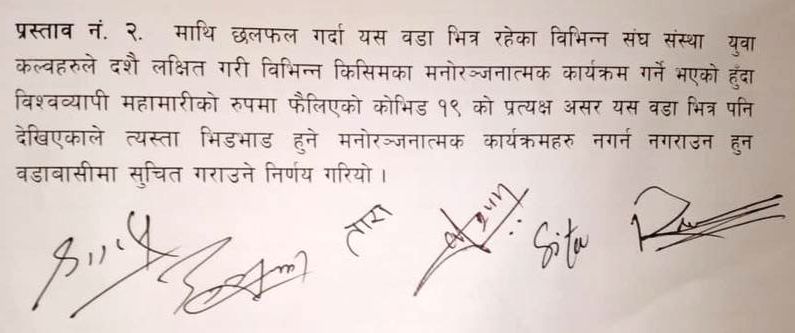 प्रस्ताव नं. २. माथि छलफल गर्दा यस वडा भित्र रहेका विभिन्न संघ संस्था युवा
कल्वहरुले दशै लक्षित गरी विभिन्न किसिमका मनोरञ्जनात्मक कार्यक्रम गर्ने भएको हुँदा
विश्वव्यापी महामारीको रुपमा फैलिएको कोभिड १९ को प्रत्यक्ष असर यस वडा भित्र पनि
देखिएकाले त्यस्ता भिडभाड हुने मनोरञ्जनात्मक कार्यक्रमहरु नगर्न नगराउन हुन
वडाबासीमा सुचित गराउने निर्णय गरियो ।
तारा Sita